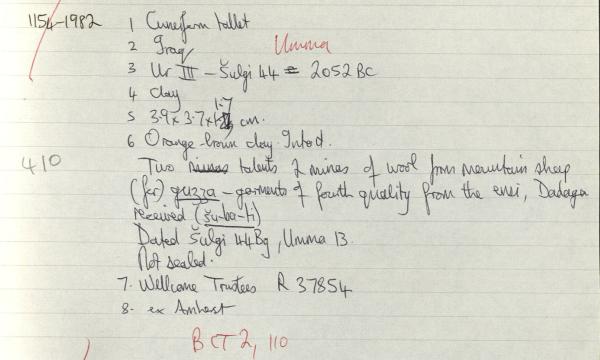 1154-1982 1 Cuneiform tablet
2 Iraq Umma
3 Ur III - Šulgi 44 = 2052 BC
4 clay
5 3.9 x 3.7 x 1.7 cm.
6 Orange-brown clay. Intact.
410 Two talents 2 mines of wool from mountain sheep
(for) guzza - garments of fourth quality from the ensi, Dadaga
received (šu-ba-ti)
Dated Šulgi 44Bg, Umma 13.
Not sealed.
7. Wellcome Trustees R 37854
8. ex Amherst
BCT 2, 110